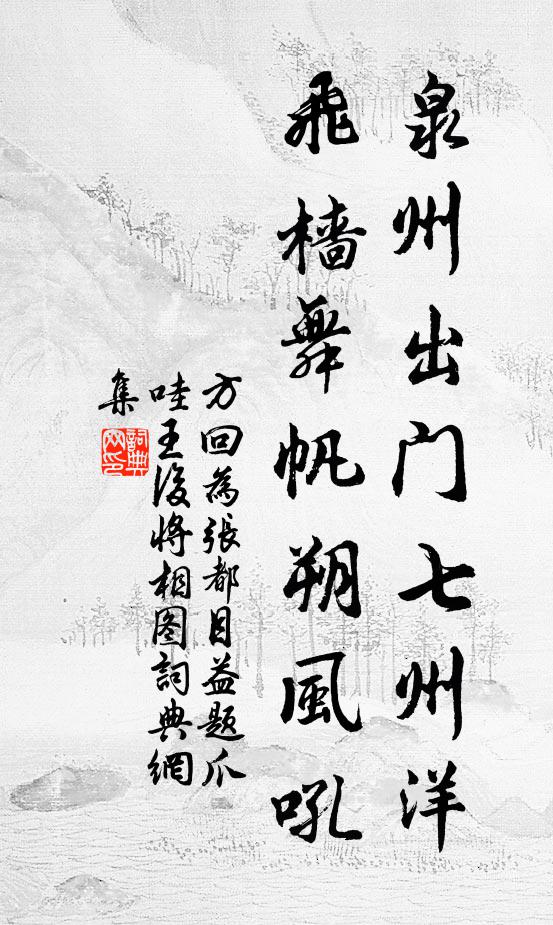 泉州出门七州洋
飛檣舞帆朔風吼
方回為張都目益題爪
哇王後將相图詞典網
集
詞典網印